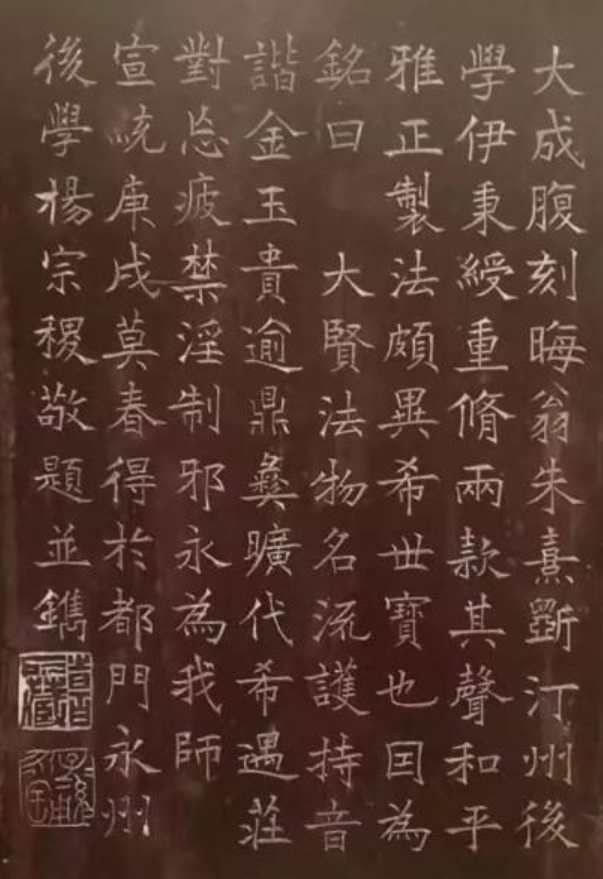 大成腹刻晦翁朱熹斵汀州後
學伊秉綬重脩兩款其聲和平
雅正製法頗異希世寶也因為
銘曰 大賢法物名流護持音
諧金玉貴逾鼎彝曠代希遇莊
對忘疲禁淫制邪永為我師
宣統庚戌莫春得於都門永州
後學楊宗稷敬題並鐫